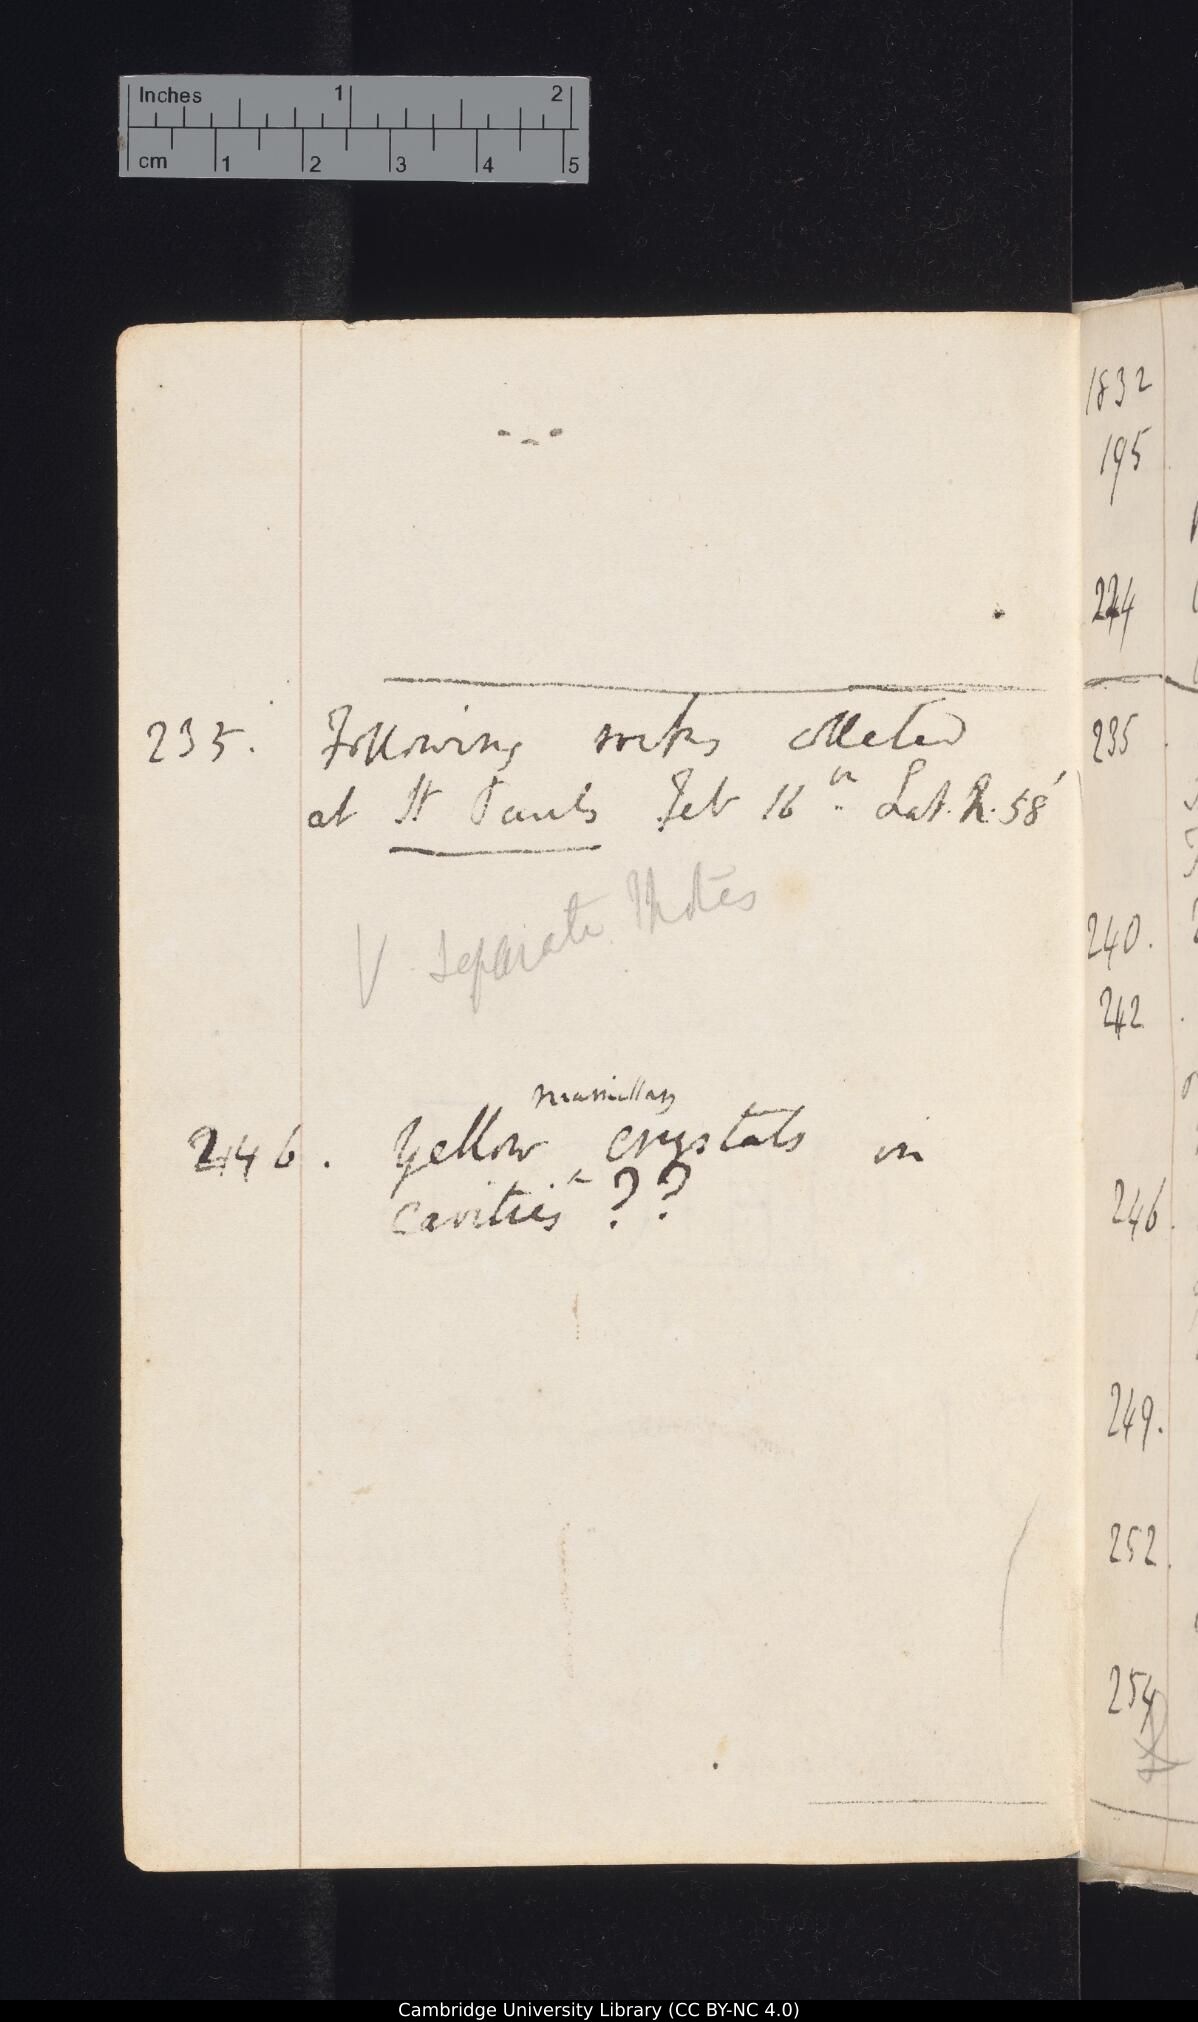 Inches 1 2
cm 1 2 3 4 5
1832
195
244
235. Following rocks collected
at St Pauls Feb 16th Lat. . 58'
V separate Notes
mamillary
246. Yellow crystals in
cavities ??
235
240.
242
246.
249.
252.
254
Cambridge University Library (CC BY-NC 4.0)